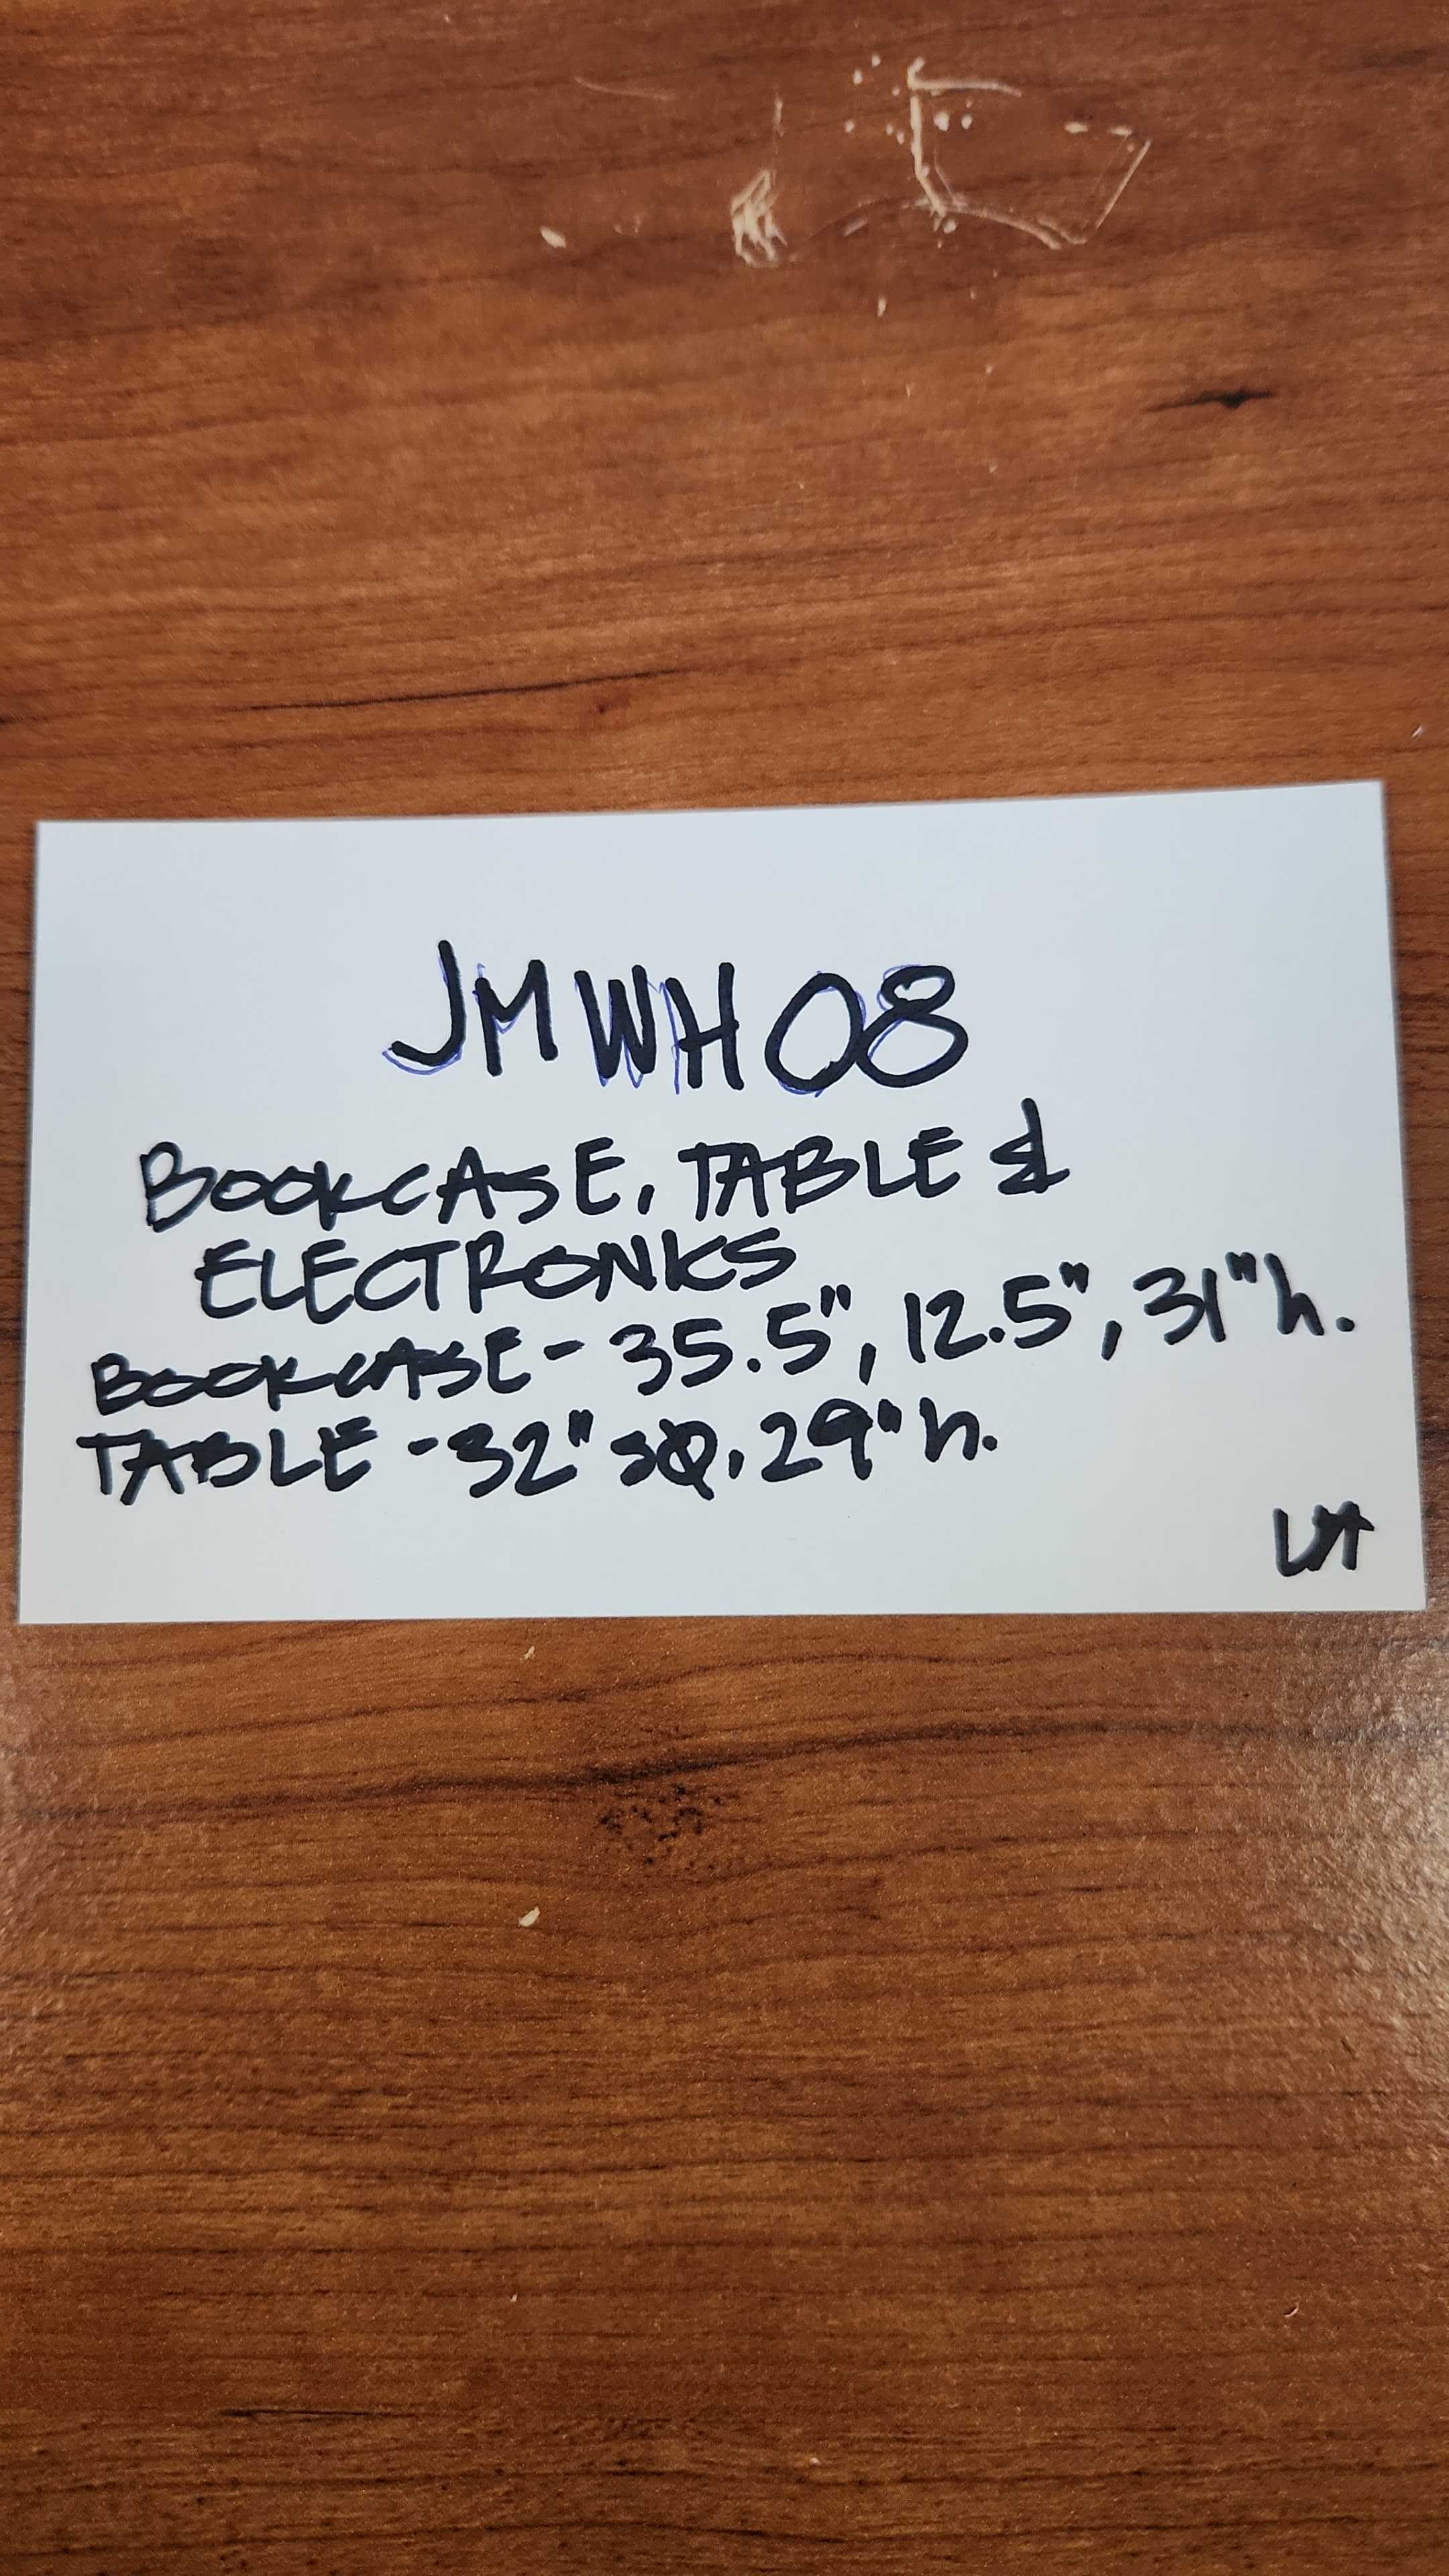 JMWH08
BOOKCASE, TABLE &
ELECTRONICS
BOOKCASE - 35.5", 12.5", 31" h.
TABLE - 32" SQ, 29" h.